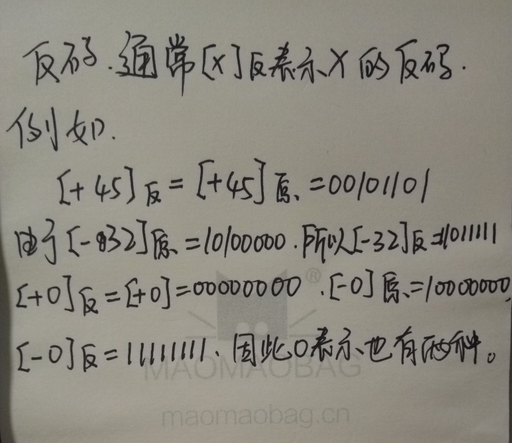 反码.通常[X]反表示X的反码.
例如.
[+45]反=[+45]原.=00101101
由于[-32]原.=10100000.所以[-32]反=1011111
[+0]反=[+0]=00000000.[-0]原.=10000000,
[-0]反=11111111、因此0表示也有两种。
MAOMAOBAG
maomaobag.cn